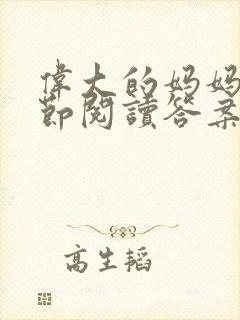 偉大的妈妈
節閱讀答案
高生韬